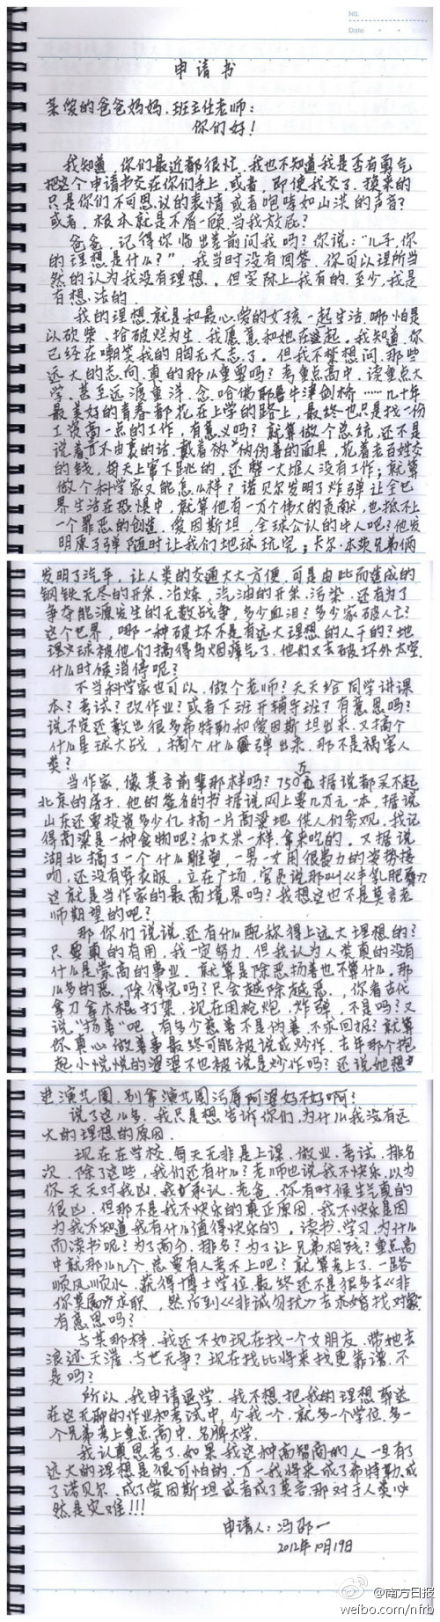 NO.
Date
申请书
亲爱的爸爸妈妈、班主任老师：
你们好！
我知道，你们最近都很忙，我也不知道我是否有勇气
把这个申请书交在你们手上，或者，即使我交了，换来的
只是你们不可思议的表情或者咆哮如山洪的声音？
或者，根本就是不屑一顾，当我放屁？
爸爸，记得你临出差前问我吗？你说：“儿子，你
的理想是什么？”，我当时没有回答，你可以理所当
然的认为我没有理想，但实际上我有的，至少，我是
有想法的。
我的理想就是和最心爱的女孩一起生活，哪怕是
以砍柴、拾破烂为生，我愿意和她在一起。我知道，你
已经在嘲笑我的胸无大志了。但我不禁想问，那些
远大的志向，真的那么重要吗？考重点高中，读重点大
学，甚至远渡重洋，念哈佛耶鲁牛津剑桥……几十年
最美好的青春都花在上学的路上，最终也只是找一份
工资高一点的工作，有意义吗？就算做个总统，还不是
说着言不由衷的话，戴着伪善的面具，花着老百姓交
的钱，每天上窜下跳的，还整一大堆人没有工作；就算
做个科学家又能怎么样？诺贝尔发明了炸弹让全世
界生活在恐惧中，就算他有一万个伟大的贡献，也抵不上
一个罪恶的创造。爱因斯坦，全球公认的牛人吧？他发
明原子弹随时让我们地球玩完；卡尔·本茨兄弟俩
发明了汽车，让人类的交通大大方便，可是由此而造成的
钢铁无尽的开采、冶炼，汽油的开采、污染，还有为了
争夺能源发生的无数战争，多少血泪？多少家破人亡？
这个世界，哪一种破坏不是有远大理想的人干的？地
球被他们搞得乌烟瘴气了，他们又去破坏外太空，
什么时候消停呢？
不当科学家也可以，做个老师？天天给同学讲课
本？考试？改作业？或者下班开辅导班了有意思吗？
说不定还教出很多希特勒和爱因斯坦出来，又搞个
什么星球大战，搞个什么弹出来，那不是祸害人
类？
当作家，像莫言前辈那样吗？750万据说都买不起
北京的房子，他的签名的书据说网上要几万元一本，据说
山东还要投资多少亿搞一片高粱地，供人们参观，我记
得高粱是一种食物吧？和大米一样，拿来吃的。又据说
湖北搞了一个什么雕塑，一男一女用很费力的姿势接
吻，还没有穿衣服，立在广场，官员说那叫《丰乳肥臀》
这就是当作家的最高境界吗？我想这也不是莫言老
师期望的吧？
那你们说说，还有什么配称得上远大理想的？
只要真的有用，我一定努力。但我认为人类真的没有
什么是崇高的事业，就算是除恶扬善也不算什么，那
么多的恶，除得完吗？只会越除越恶，你看古代
拿刀拿木棍打架，现在用枪炮、炸弹，不是吗？又
说“扬善”吧，有多少慈善不是伪善，不求回报？就算
你真心做善事最终可能被说成炒作，去年那个抱
起小悦悦的婆婆不也被说是炒作吗？还说她想
进演艺圈，别拿演艺圈污辱阿婆好不好啊？
说了这么多，我只是想告诉你们，为什么我没有远
大的理想的原因。
现在在学校，每天无非是上课、做业、考试、排名
次，除了这些，我们还有什么？老师也说我不快乐，以为
你天天对我凶，我承认，老爸，你有时候生气真的
很凶，但那不是我不快乐的真正原因，我不快乐是因
为我不知道我有什么值得快乐的，读书、学习，为什么
而读书呢？为了高分、排名？为了让兄弟相残？重点高
中就那么几个，总要有人考不上吧？就算考上了，一路
顺风顺水，获得博士学位，最终还不是很多去《非
你莫属》求职，然后到《非诚勿扰》去求婚找对象，
有意思吗？
与其那样，我还不如现在找一个女朋友，带她去
浪迹天涯，与世无争？现在找比将来找更靠谱，不
是吗？
所以，我申请退学，我不想把我的理想葬送
在这无聊的作业和考试中，少我一个，就多一个学位，多一
个兄弟考上重点高中、名牌大学。
我认真思考了，如果我这种高智商的人一旦有了
远大的理想是很可怕的，万一我将来成了希特勒，成
了诺贝尔，成了爱因斯坦或者成了莫言，那对于人类必
然是灾难！！！
申请人：冯邵一
2012年10月19日
@南方日报
weibo.com/nfrb